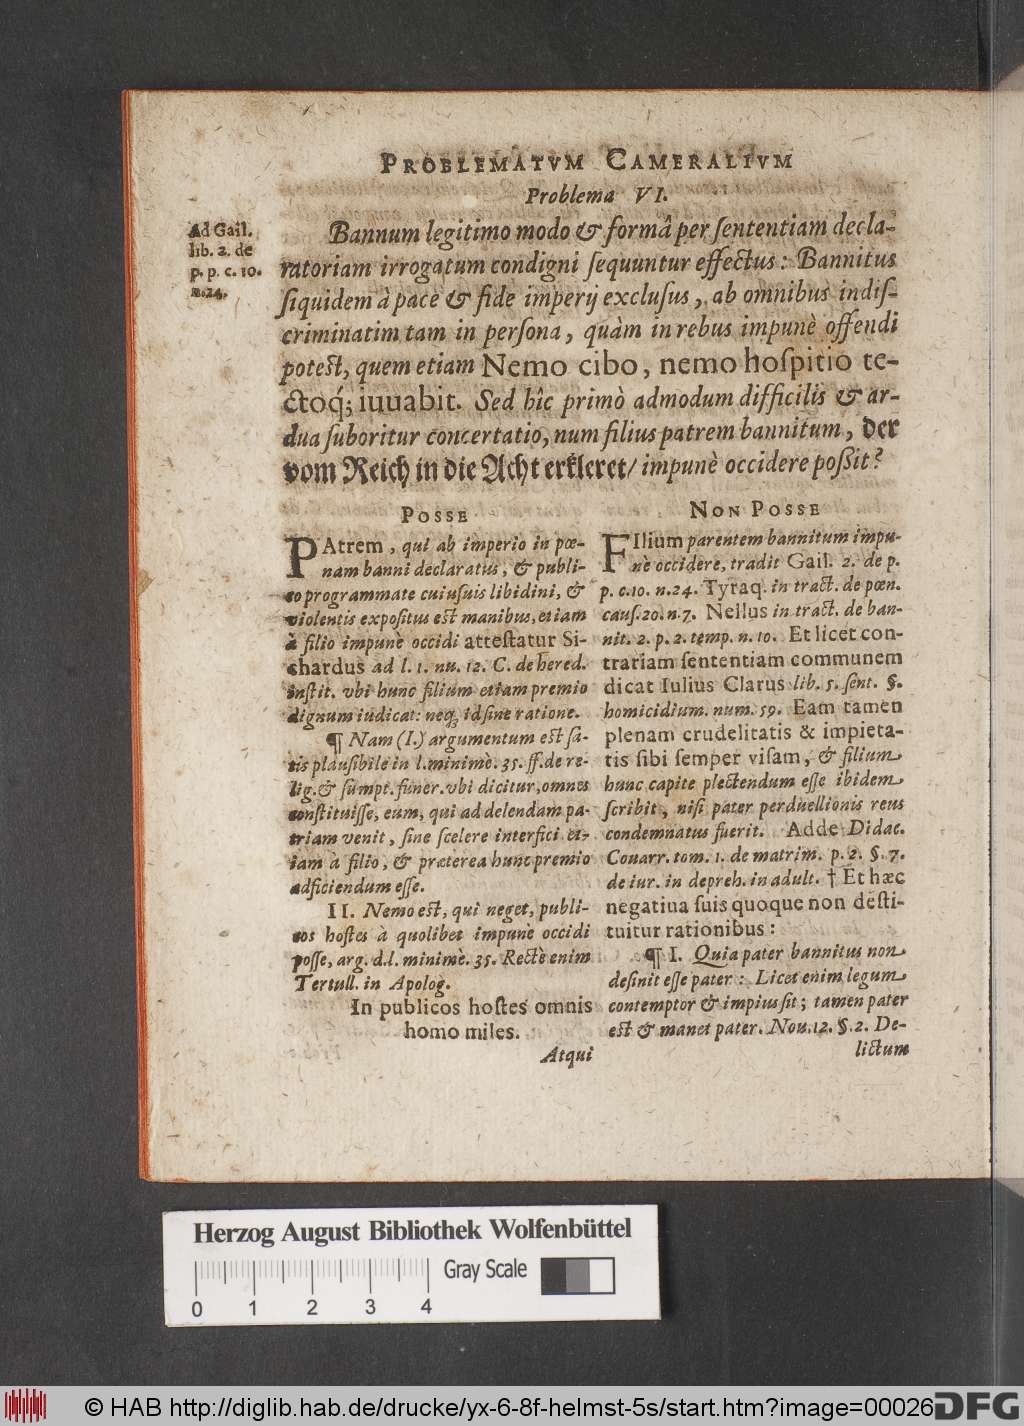 PROBLEMATVM CAMERALIVM
Problema VI.
Ad Gail.
lib. 2. de
p. p. c. 10.
n. 24.
Bannum legitimo modo & formâ per ſententiam decla-
ratoriam irrogatum condigni ſequuntur effectus: Bannitus
ſiquidem à pace & fide imperij excluſus, ab omnibus indiſ-
criminatim tam in perſona, quàm in rebus impunè offendi
potest, quem etiam Nemo cibo, nemo hoſpitio te-
ctoq́; iuuabit. Sed hîc primò admodum difficilis & ar-
dua ſuboritur concertatio, num filius patrem bannitum, der
vom Reich in die Acht erkleret/ impunè occidere poſsit?
POSSE
PAtrem, qui ab imperio in pœ-
nam banni declaratus, & publi-
co programmate cuiuſuis libidini, &
violentis expoſitus est manibus, etiam
à filio impunè occidi atteſtatur Si-
chardus ad l. 1. nu. 12. C. de hered.
instit. vbi hunc filium etiam premio
dignum iudicat: neq; id ſine ratione.
¶ Nam (I.) argumentum est ſa-
tis plauſibile in l. minimè. 35. ff. de re-
lig. & ſumpt. funer. vbi dicitur, omnes
constituiſſe, eum, qui ad delendam pa-
triam venit, ſine ſcelere interfici et-
iam à filio, & præterea hunc premio
adficiendum eſſe.
II. Nemo est, qui neget, publi-
cos hostes à quolibet impunè occidi
poſſe, arg. d. l. minime. 35. Rectè enim
Tertull. in Apolog.
In publicos hoſtes omnis
homo miles.
Atqui
NON POSSE
FIlium parentem bannitum impu-
nè occidere, tradit Gail. 2. de p.
p. c. 10. n. 24. Tyraq. in tract. de pœn.
cauſ. 20. n. 7. Nellus in tract. de ban-
nit. 2. p. 2. temp. n. 10. Et licet con-
trariam ſententiam communem
dicat Iulius Clarus lib. 5. ſent. §.
homicidium. num. 59. Eam tamen
plenam crudelitatis & impieta-
tis ſibi ſemper viſam, & filium
hunc capite plectendum eſſe ibidem
ſcribit, niſi pater perduellionis reus
condemnatus fuerit. Adde Didac.
Couarr. tom. 1. de matrim. p. 2. §. 7.
de iur. in depreh. in adult. † Et hæc
negatiua ſuis quoque non deſti-
tuitur rationibus:
¶ I. Quia pater bannitus non
deſinit eſſe pater: Licet enim legum
contemptor & impius ſit; tamen pater
est & manet pater. Nou. 12. §. 2. De-
lictum
Herzog August Bibliothek Wolfenbüttel
Gray Scale
0 1 2 3 4
© HAB http://diglib.hab.de/drucke/yx-6-8f-helmst-5s/start.htm?image=00026
DFG